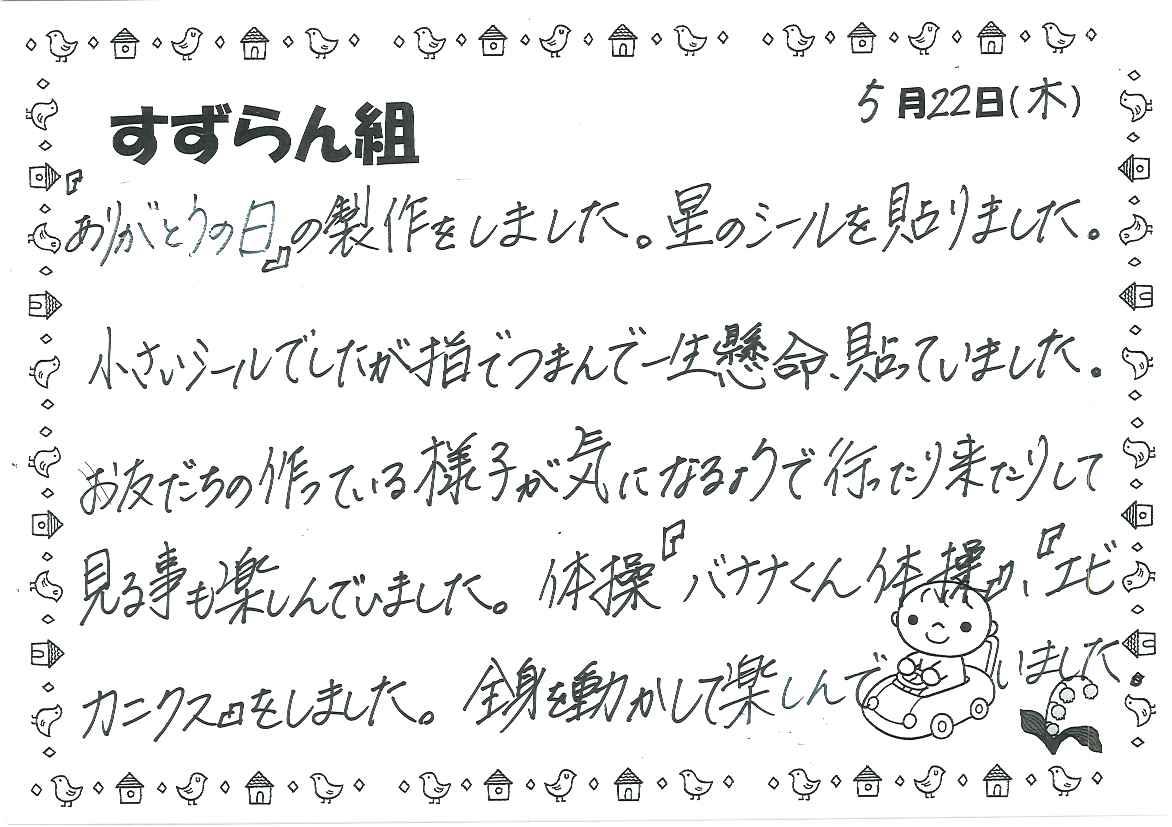 5月22日(木)
すずらん組
『ありがとうの日』の製作をしました。星のシールを貼りました。
小さいシールでしたが指でつまんで一生懸命、貼っていました。
お友だちの作っている様子が気になるようで行ったり来たりして
見る事も楽しんでいました。体操『バナナくん体操』、『エビ
カニクス』をしました。全身を動かして楽しんでいました。